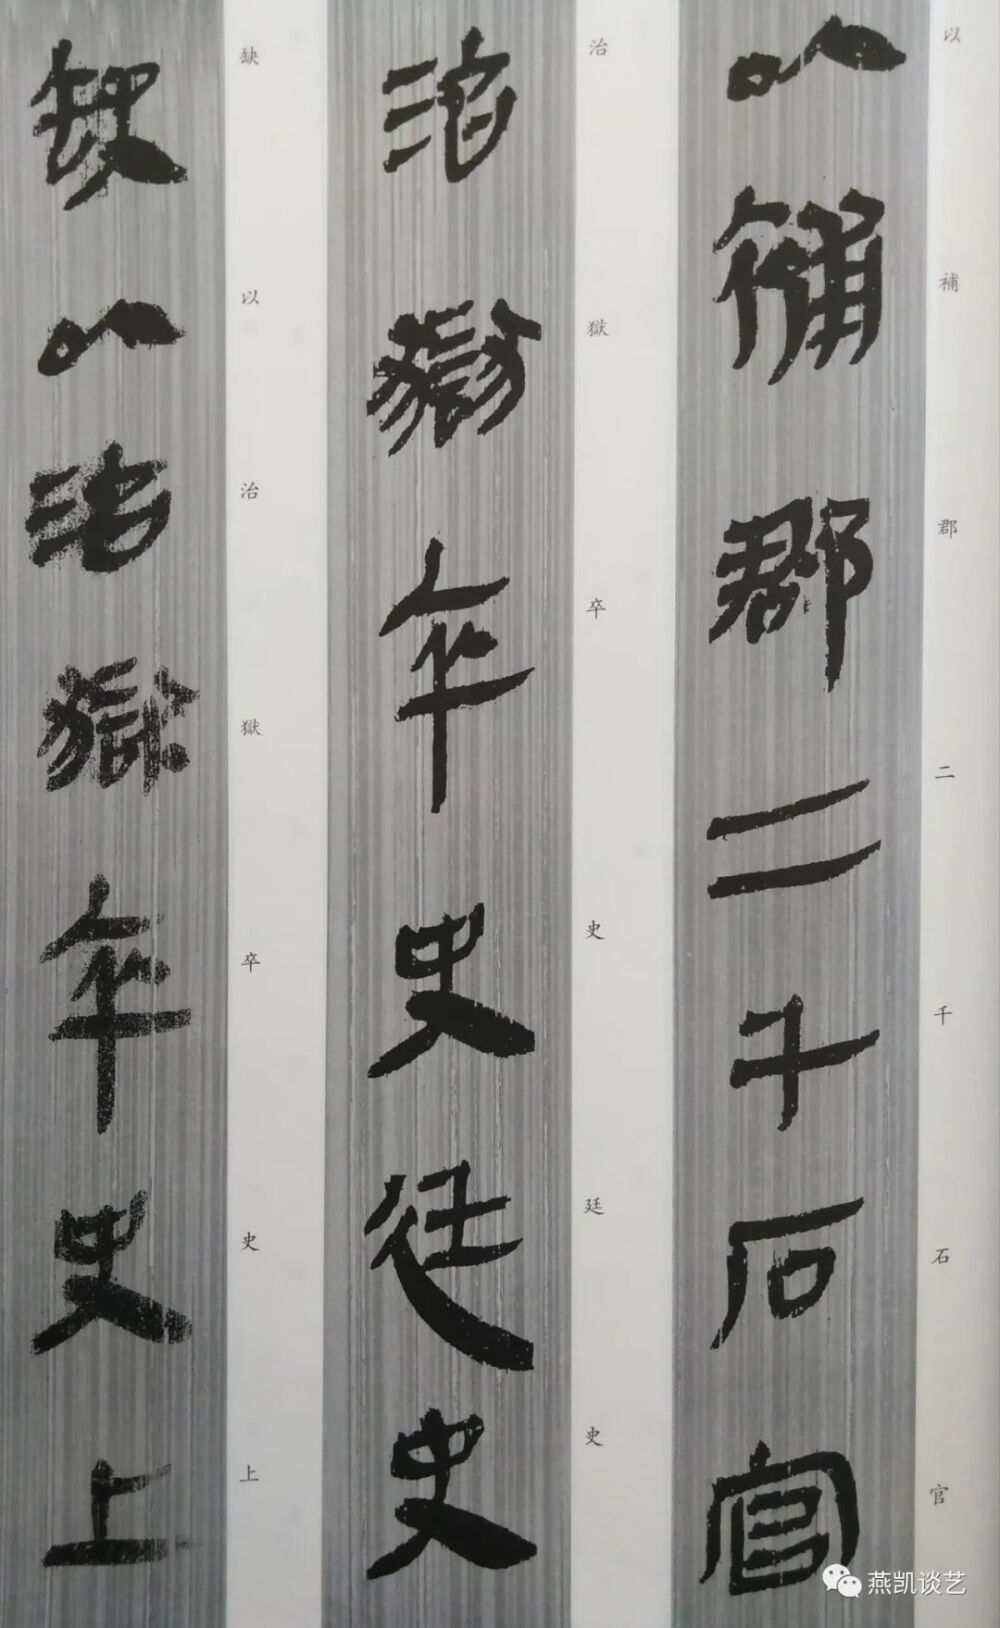 以補郡二千石官
治獄卒史廷史
缺以治獄卒史上
以補郡二千石官
治獄卒史廷史
缺以治獄卒史上
燕凯谈艺